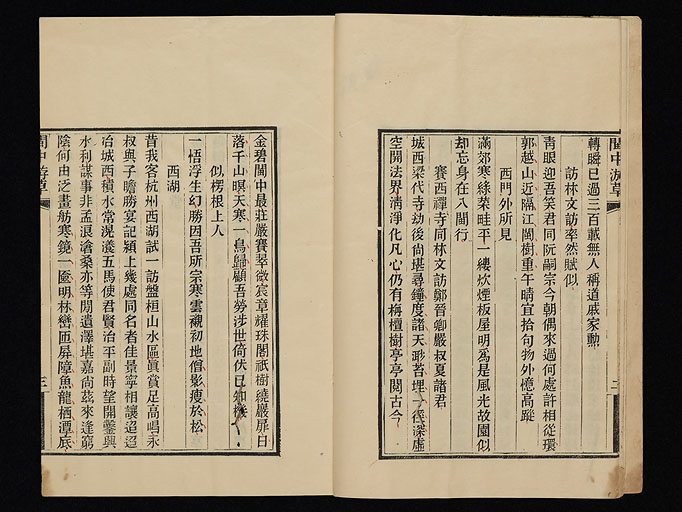 閩中游草
轉瞬已過三百載無人稱道戚家勳
訪林文訪率然賦似
靑眼迎吾笑君同阮嗣宗今朝偶來過何處許相從環
郭越山近隔江閩樹重午晴宜拾句物外憶高蹤
西門外所見
滿郊寒綠菜畦平一縷炊煙板屋明爲是風光故園似
却忘身在八閩行
賽西禪寺同林文訪鄭晉卿嚴叔夏諸君
城西梁代寺劫後尙堪尋鐘度諸天聄苔埋一徑深虛
空開法界淸淨化凡心仍有栴檀樹亭亭閱古今
二
金碧閩中最莊嚴賽翠微宸章耀珠閣祇樹繞嚴扉白
落千山暝天寒一鳥歸顧吾勞涉世倚伏已知機
似楞根上人
一悟浮生幻勝因吾所宗寒雲襯初地僧影瘦於松
西湖
昔我客杭州西湖試一訪盤桓山水區眞賞足高唱永
叔與子瞻勝宴記潁上幾處同名者佳景寧相讓迢迢
冶城西積水常滉瀁五馬使君賢治平副時望開鑿興
水利謀事非孟浪滄桑亦等閒遺澤堪嘉尙茲來逢窮
陰何由泛畫舫寒鏡一匳明林巒匝屏障魚龍栖潭底
閩中游草
三